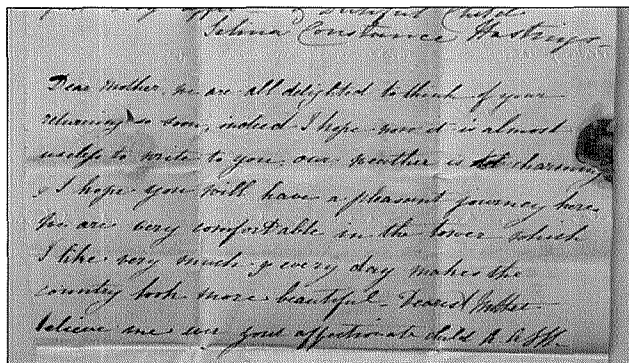 dutiful Child
Selina Constance Hastings
Dear Mother, we are all delighted to think of your
returning so soon, indeed I hope now it is almost
useless to write to you, our weather is charming
& I hope you will have a pleasant journey here.
We are very comfortable in the tower which
I like very much & every day makes the
country look more beautiful - Dearest Mother
believe me ever your affectionate child